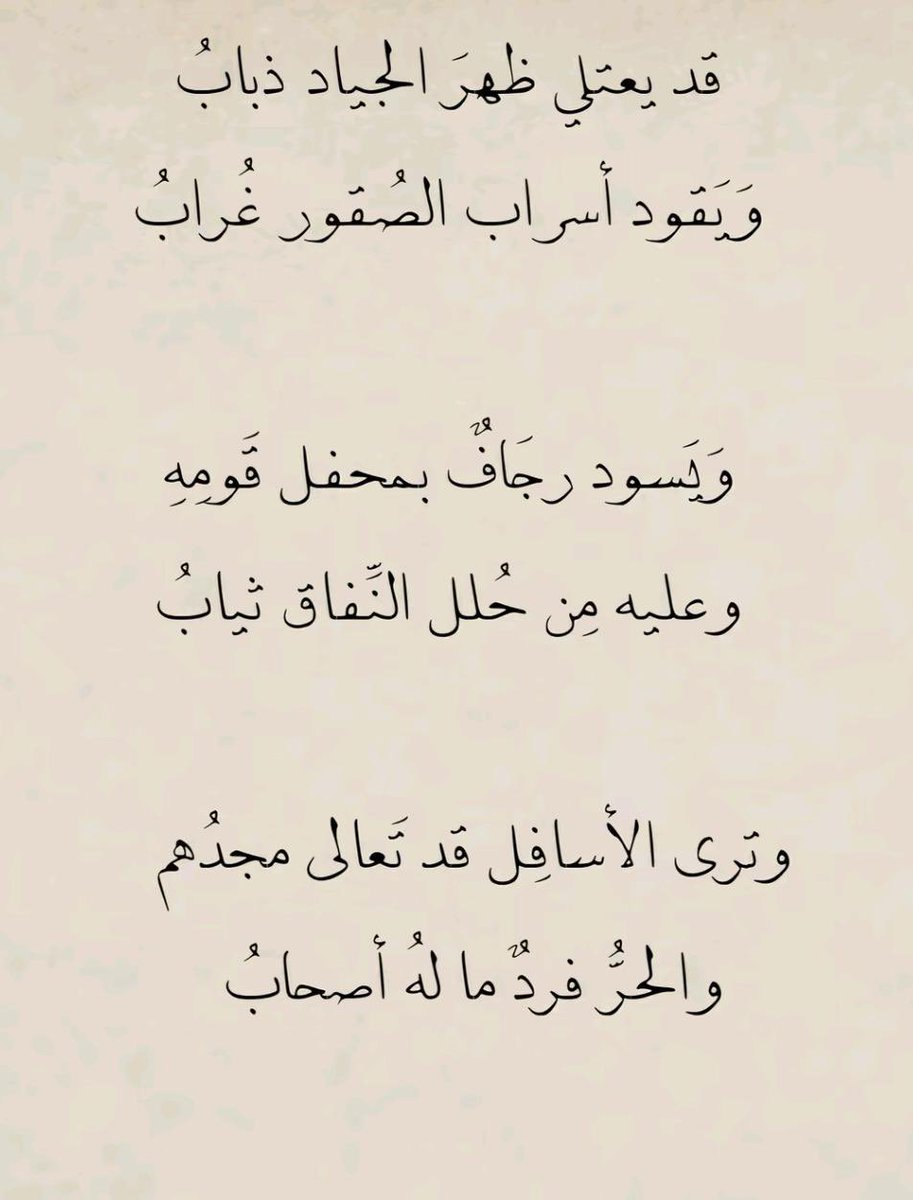 قد يعتلي ظهرَ الجياد ذبابُ
وَيَقود أسراب الصُقور غُرابُ
وَيَسود رجَافٌ بمحفل قَومِهِ
وعليه مِن حُلل النِّفاق ثيابُ
وترى الأسافِل قد تَعالى مجدُهم
والحرُّ فردٌ ما لهُ أصحابُ